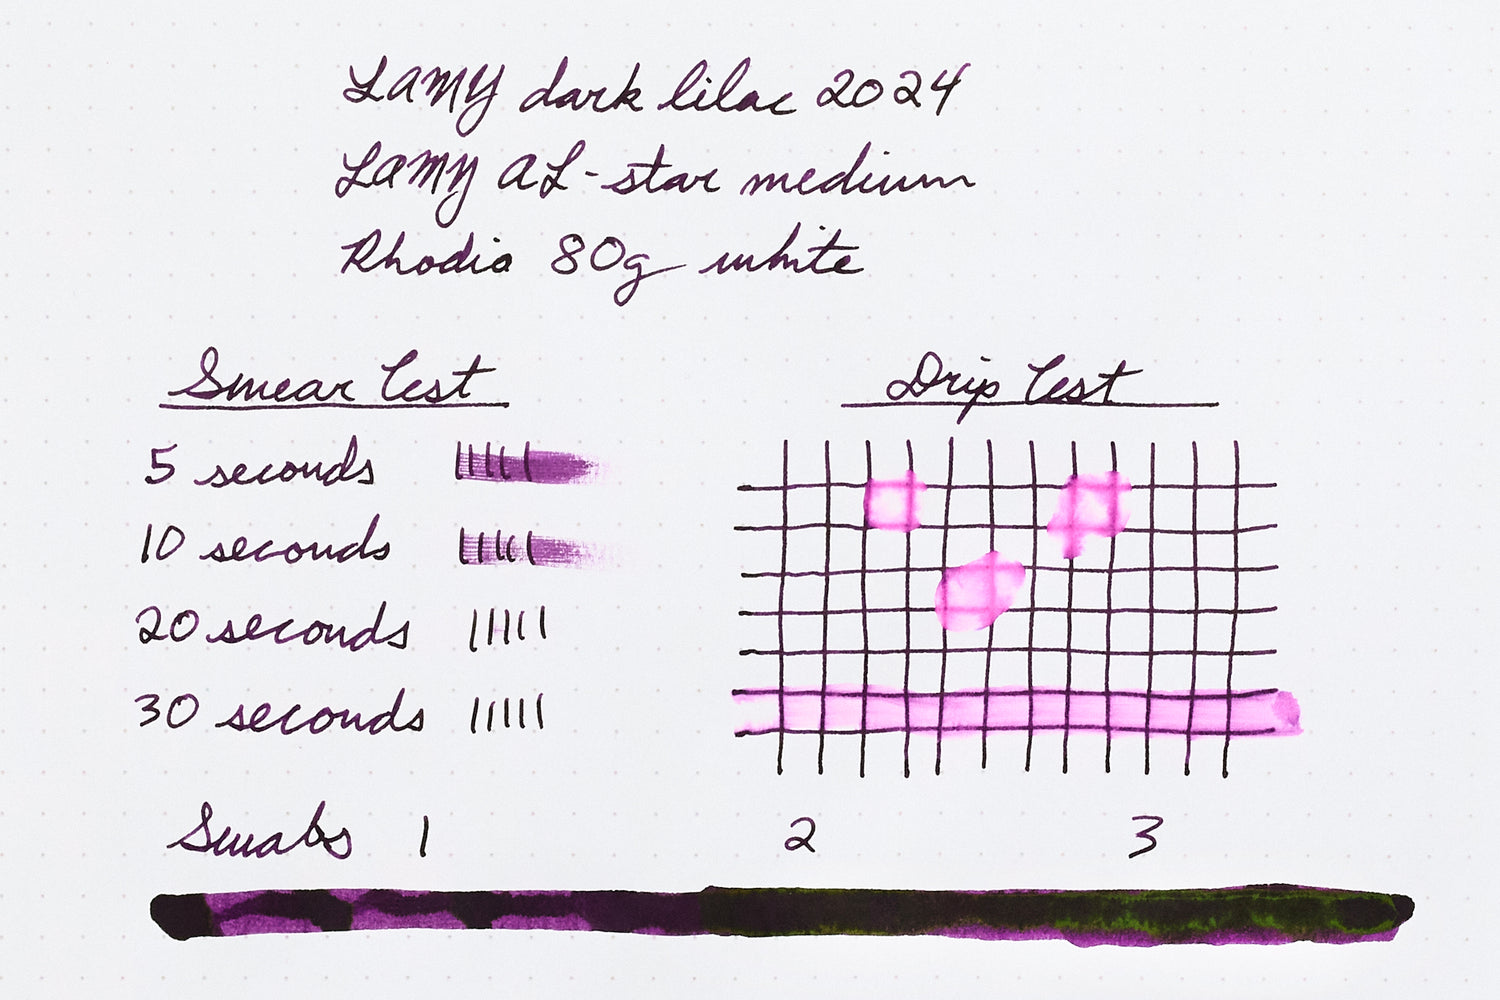 LAMY dark lilac 2024
LAMY AL-star medium
Rhodia 80g white
Smear Test
5 seconds
10 seconds
20 seconds
30 seconds
Drip Test
Swabs 1 2 3